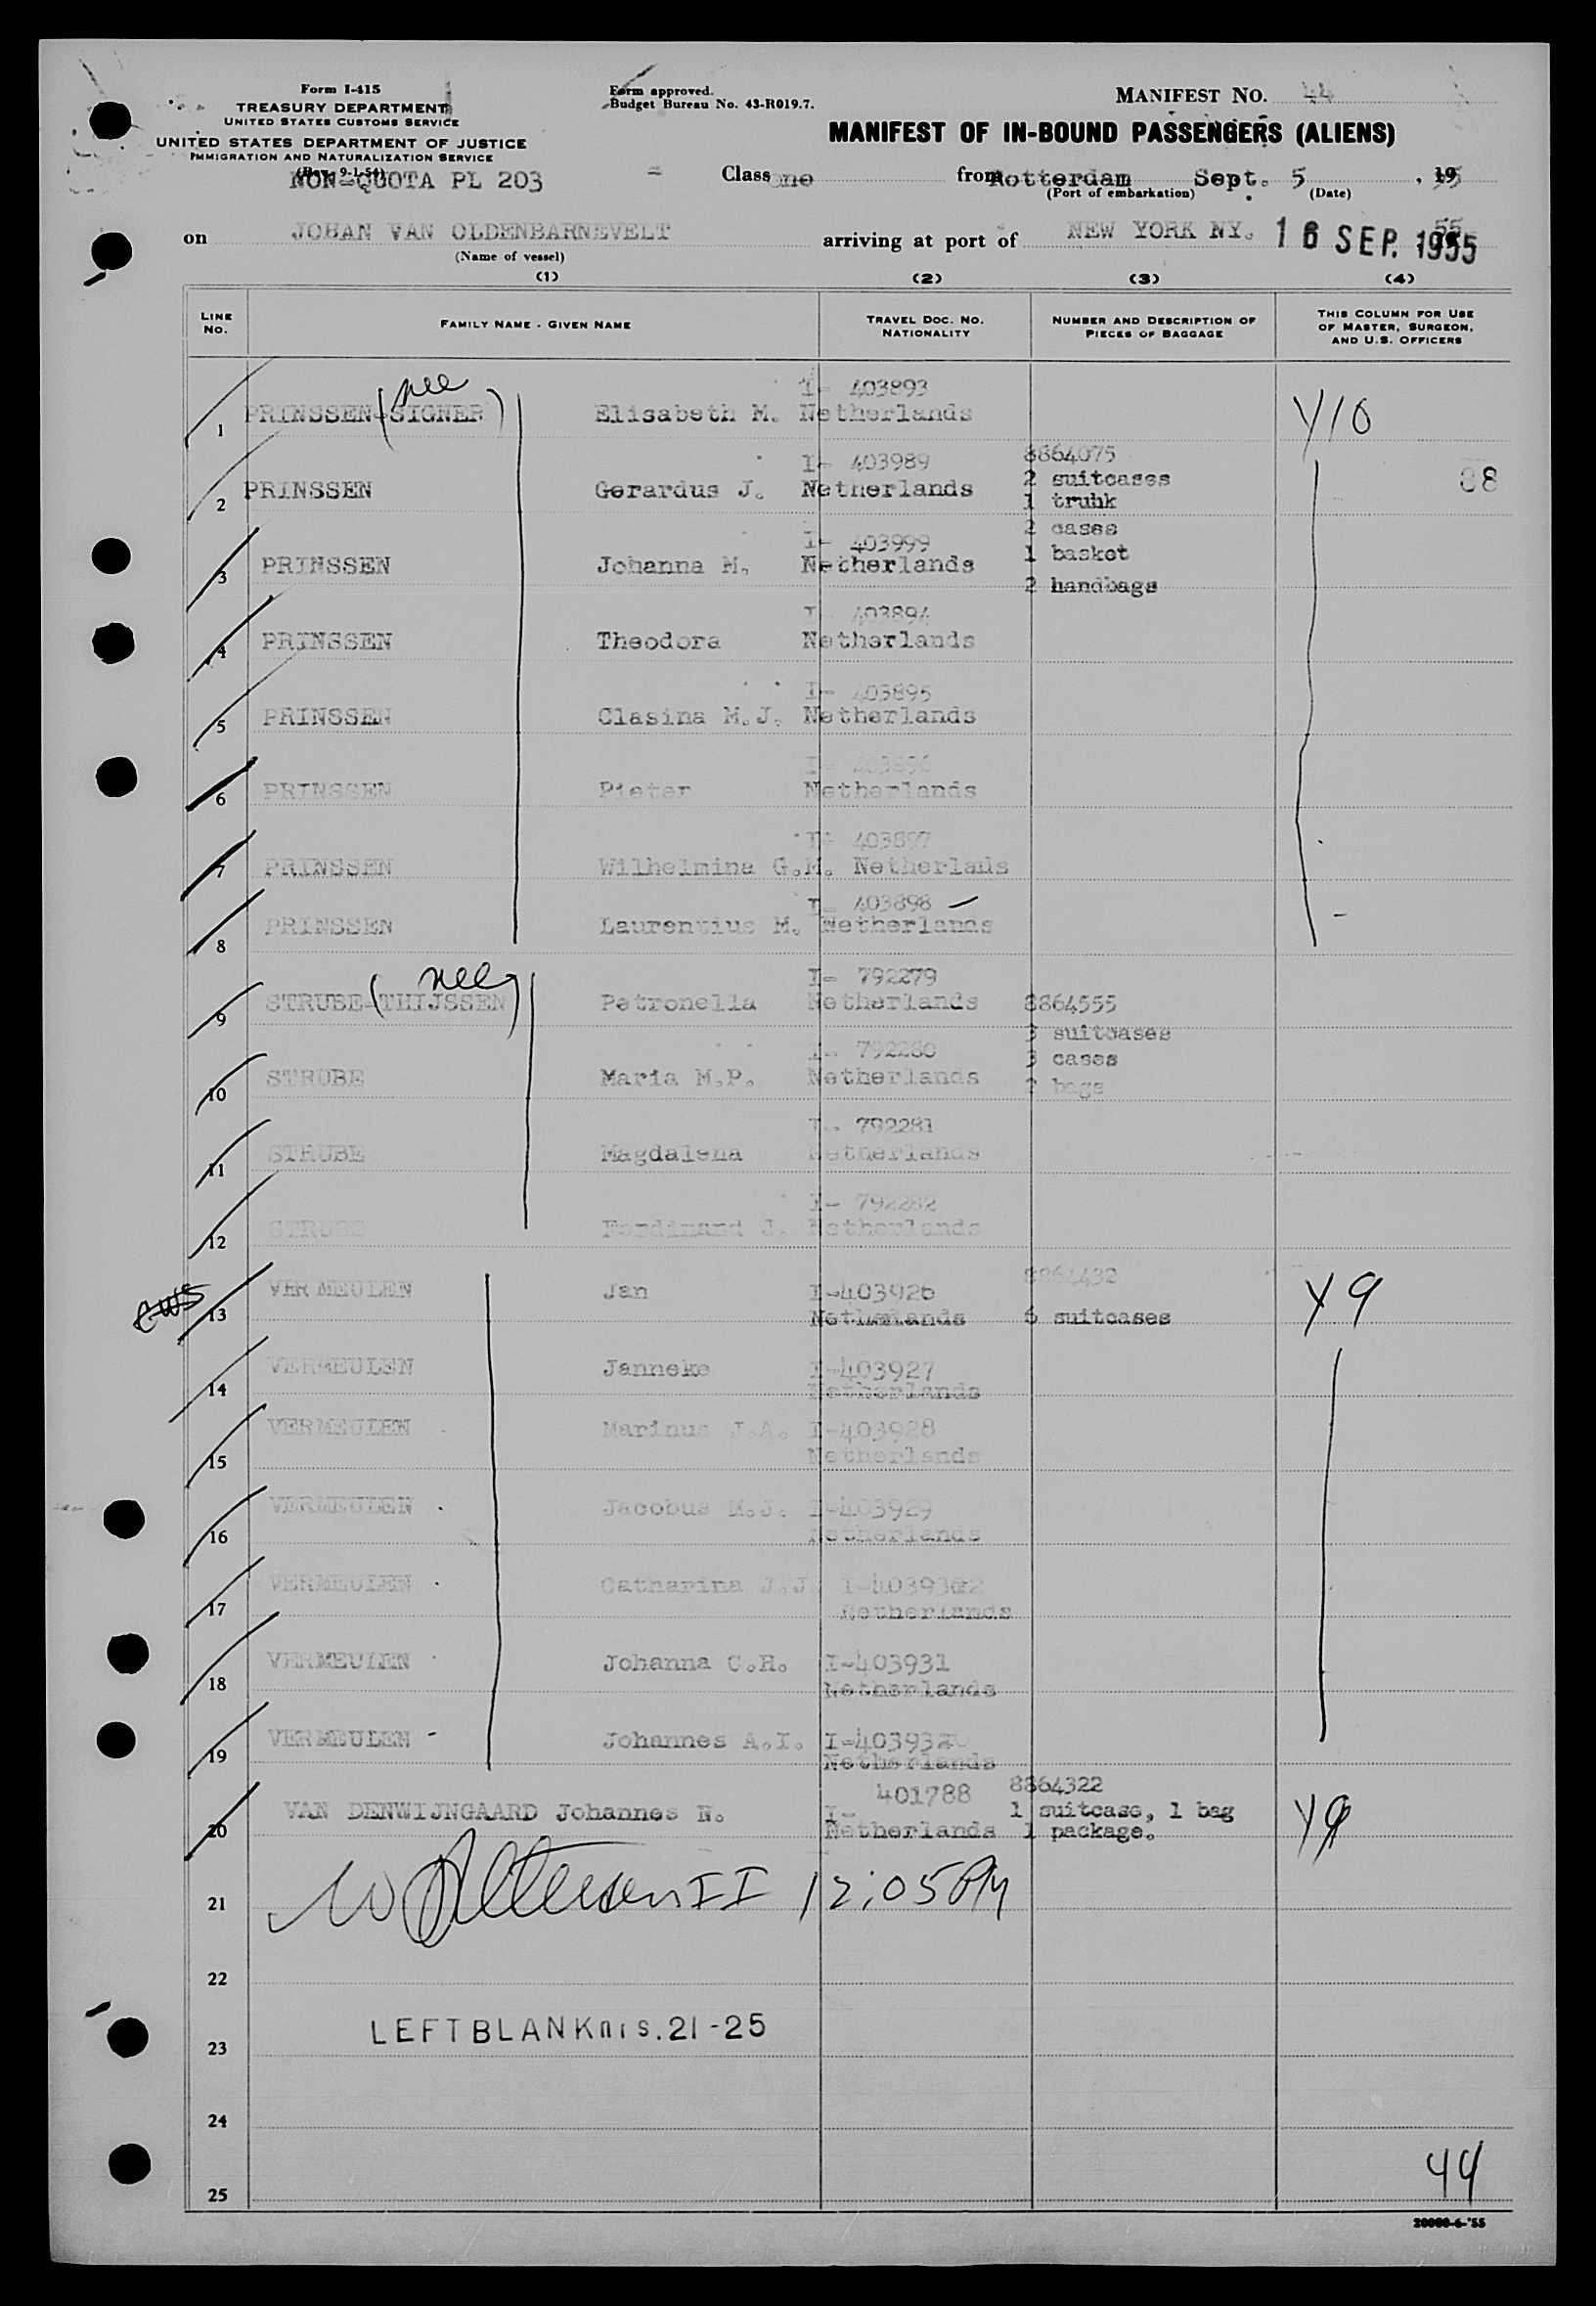 Form I-415
TREASURY DEPARTMENT
UNITED STATES CUSTOMS SERVICE
UNITED STATES DEPARTMENT OF JUSTICE
IMMIGRATION AND NATURALIZATION SERVICE
(Rev. 9-1-54)
NON-QUOTA PL 203
Form approved.
Budget Bureau No. 43-R019.7.
MANIFEST NO. 44
MANIFEST OF IN-BOUND PASSENGERS (ALIENS)
Class one from Rotterdam Sept. 5, 1955
(Port of embarkation) (Date)
on JOHAN VAN OLDENBARNEVELT arriving at port of NEW YORK NY. 16 SEP. 1955
(Name of vessel)
(1) (2) (3) (4)
LINE NO. FAMILY NAME - GIVEN NAME TRAVEL DOC. NO. NATIONALITY NUMBER AND DESCRIPTION OF PIECES OF BAGGAGE THIS COLUMN FOR USE OF MASTER, SURGEON, AND U.S. OFFICERS
nee I- 403893
1 PRINSSEN-(SIGNER) Elisabeth M. Netherlands Y10
I- 403989 8864075
2 PRINSSEN Gerardus J. Netherlands 2 suitcases 88
1 trunk
I- 403999 2 cases
3 PRINSSEN Johanna M. Netherlands 1 basket
2 handbags
I- 403894
4 PRINSSEN Theodora Netherlands
I- 403895
5 PRINSSEN Clasina M.J. Netherlands
I- 403896
6 PRINSSEN Pieter Netherlands
I- 403897
7 PRINSSEN Wilhelmina G.M. Netherlads
I- 403898
8 PRINSSEN Laurentius M. Netherlands
nee I- 792279
9 STRUBE-(THIJSSEN) Petronella Netherlands 8864555
3 suitcases
I- 792280 3 cases
10 STRUBE Maria M.P. Netherlands bags
I- 792281
11 STRUBE Magdalena Netherlands
I- 792282
12 STRUBE Ferdinand J. Netherlands
13 VERMEULEN Jan I-403926 8864432 Y9
Netherlands 6 suitcases
14 VERMEULEN Janneke I-403927
Netherlands
15 VERMEULEN Marinus J.A. I-403928
Netherlands
16 VERMEULEN Jacobus M.J. I-403929
Netherlands
17 VERMEULEN Catharina J.J.
Netherlands
18 VERMEULEN Johanna C.H. I-403931
Netherlands
19 VERMEULEN Johannes A.I.
Netherlands
401788 8864322
20 VAN DENWIJNGAARD Johannes N. I- 1 suitcase, 1 bag Y9
Netherlands 1 package.
21 II 12:05PM
22
LEFT BLANK nrs. 21-25
23
24
44
25
20000-6-'55